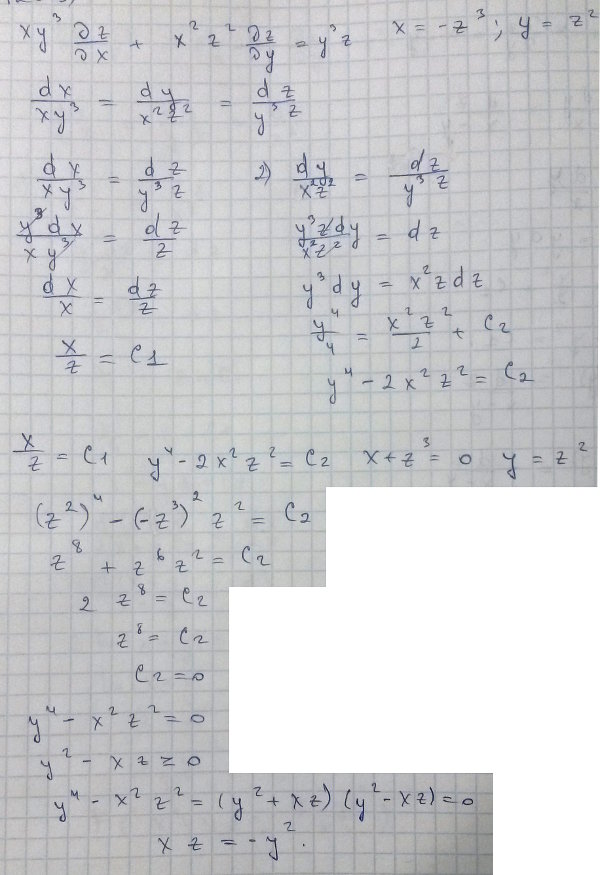 xy³ ∂z/∂x + x²z² ∂z/∂y = y³z x = -z³; y = z²
dx/xy³ = dy/x²z² = dz/y³z
dx/xy³ = dz/y³z 2) dy/x²z² = dz/y³z
y³dx/xy³ = dz/z y³zdy/x²z² = dz
dx/x = dz/z y³dy = x²zdz
x/z = C1 y⁴/4 = x²z²/2 + C2
y⁴ - 2x²z² = C2
x/z = C1 y⁴ - 2x²z² = C2 x + z³ = 0 y = z²
(z²)⁴ - (-z³)² z² = C2
z⁸ + z⁶ z² = C2
2 z⁸ = C2
z⁸ = C2
C2 = 0
y⁴ - x² z² = 0
y² - xz = 0
y⁴ - x² z² = (y² + xz) (y² - xz) = 0
xz = -y².